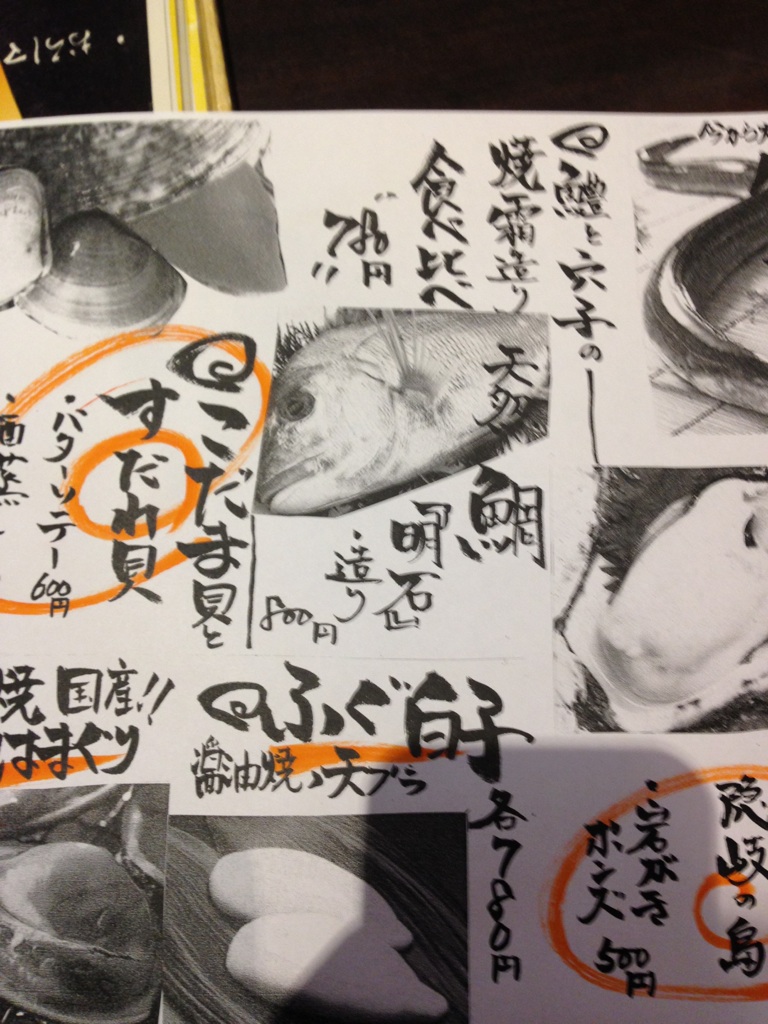 鱧と穴子の
焼霜造り
食べ比べ
780円
天然
鯛
『明石』
・造り
800円
こだま貝と
すだれ貝
・バターソテー
600円
ふぐ白子
醤油焼・天プラ
各780円
国産!!
はまぐり
隠岐の島
・岩がき
ポンズ
500円